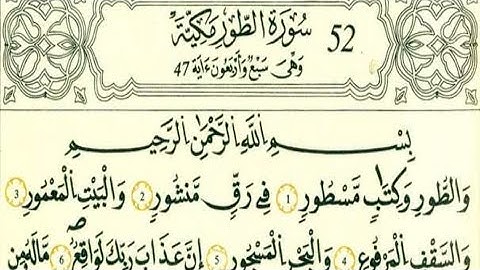 سُورَةُ الطُّورِ مَكِّيَّةٌ 52
وَهْيَ سَبْعٌ وَأَرْبَعُونَ ءَايَةً 47
بِسْمِ اِ۬للَّهِ اِ۬لرَّحْمَٰنِ اِ۬لرَّحِيمِ
وَالطُّورِ وَكِتَٰبٍ مَّسْطُورٍ 1 فِے رَقٍّ مَّنشُورٍ 2 وَالْبَيْتِ اِ۬لْمَعْمُورِ 3
وَالسَّقْفِ اِ۬لْمَرْفُوعِ 4 وَالْبَحْرِ اِ۬لْمَسْجُورِ 5 إِنَّ عَذَابَ رَبِّكَ لَوَٰقِعٌ 6 مَّا لَهُۥ مِن